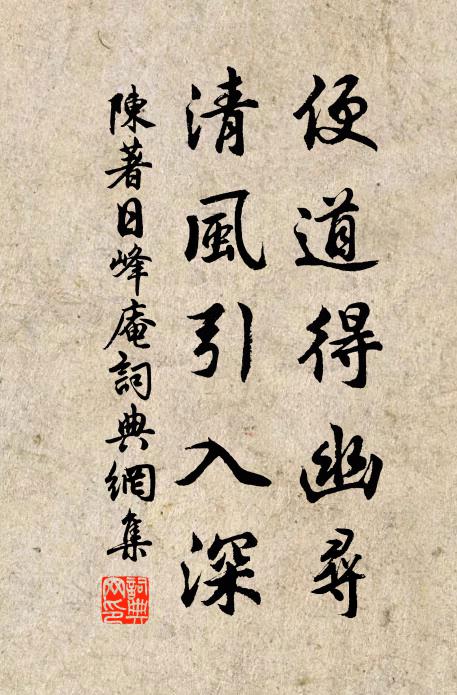 便道得幽尋
清風引入深
陳著日峰庵詞典網集
詞典
网印